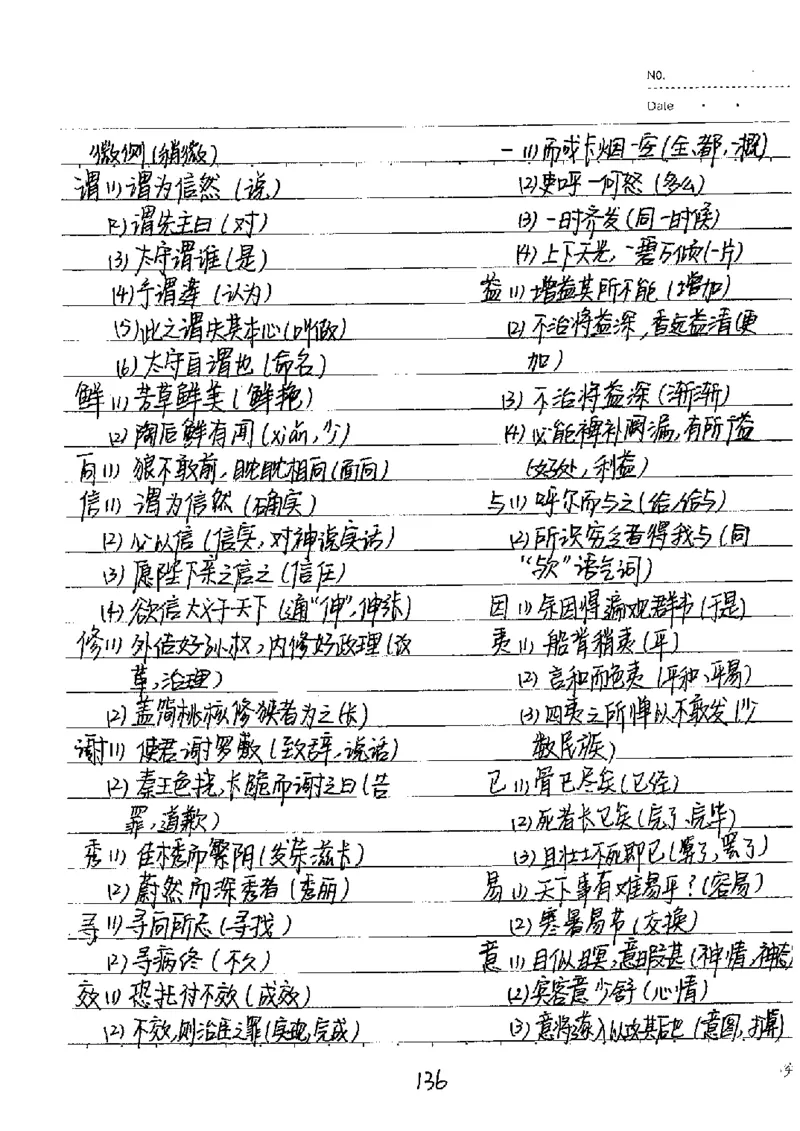 No.
Date
微侧(稍微)
谓(1)谓为信然(说)
(2)谓先主曰(对)
(3)太守谓谁(是)
(4)予谓莲(认为)
(5)此之谓失其本心(叫做)
(6)太守自谓也(命名)
鲜(1)芳草鲜美(鲜艳)
(2)陶后鲜有闻(xiǎn,少)
向(1)狼不敢前,眈眈相向(面向)
信(1)谓为信然(确实)
(2)必以信(信实,对神说实话)
(3)愿陛下亲之信之(信任)
(4)欲信大义于天下(通“伸”,伸张)
修(1)外结好孙权,内修好政理(改
革,治理)
(2)盖简桃核修狭者为之(长)
谢(1)使君谢罗敷(致辞,说话)
(2)秦王色挠,长跪而谢之曰(告
罪,道歉)
秀(1)佳木秀而繁阴(发荣滋长)
(2)蔚然而深秀者(秀丽)
寻(1)寻向所志(寻找)
(2)寻病终(不久)
效(1)恐托付不效(成效)
(2)不效,则治臣之罪(实现,完成)
一(1)而或长烟一空(全、都,一概)
(2)吏呼一何怒(多么)
(3)一时齐发(同一时候)
(4)上下天光,一碧万顷(一片)
益(1)增益其所不能(增加)
(2)不治将益深,香远益清(更
加)
(3)不治将益深(渐渐)
(4)必能裨补阙漏,有所广益
(好处,利益)
与(1)呼尔而与之(给,给与)
(2)所识穷乏者得我与(同
“欤”语气词)
因(1)余因得遍观群书(于是)
夷(1)船背稍夷(平)
(2)言和而色夷(平和、平易)
(3)四夷之所惮以不敢发(少
数民族)
已(1)骨已尽矣(已经)
(2)死者长已矣(完了、完毕)
(3)且壮士不死即已(算了,罢了)
易(1)天下事有难易乎?(容易)
(2)寒暑易节(交换)
意(1)目似瞑,意暇甚(神情,神态
(2)宾客意少舒(心情)
(3)意将遂入以攻其后也(意图,打算)
136